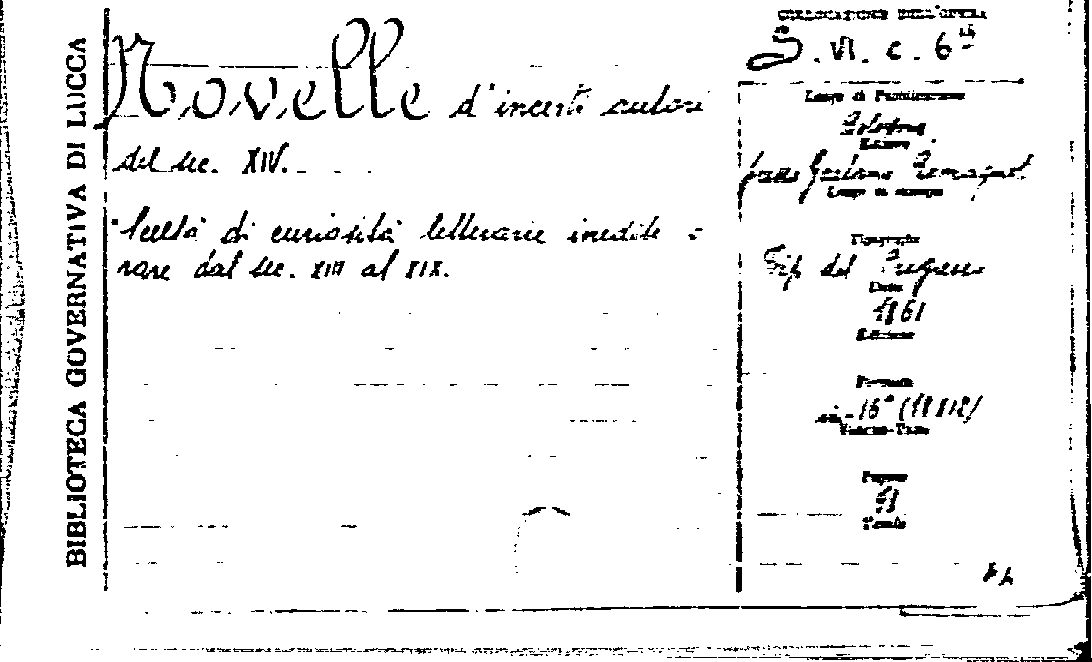 BIBLIOTECA GOVERNATIVA DI LUCCA
Novelle d'incerti autori
del sec. XIV.
Scelta di curiosità letterarie inedite o
rare dal sec. XIII al XIX.
COLLOCAZIONE DELL'OPERA
S. VI. c. 6
Luogo di Pubblicazione
Bologna
Editore
Gaetano Romagnoli
Luogo di stampa
Tipografia
Tip. del Progresso
Data
1861
Edizione
Formato
in-16°
Volume-Tomo
Pagine
Tavole